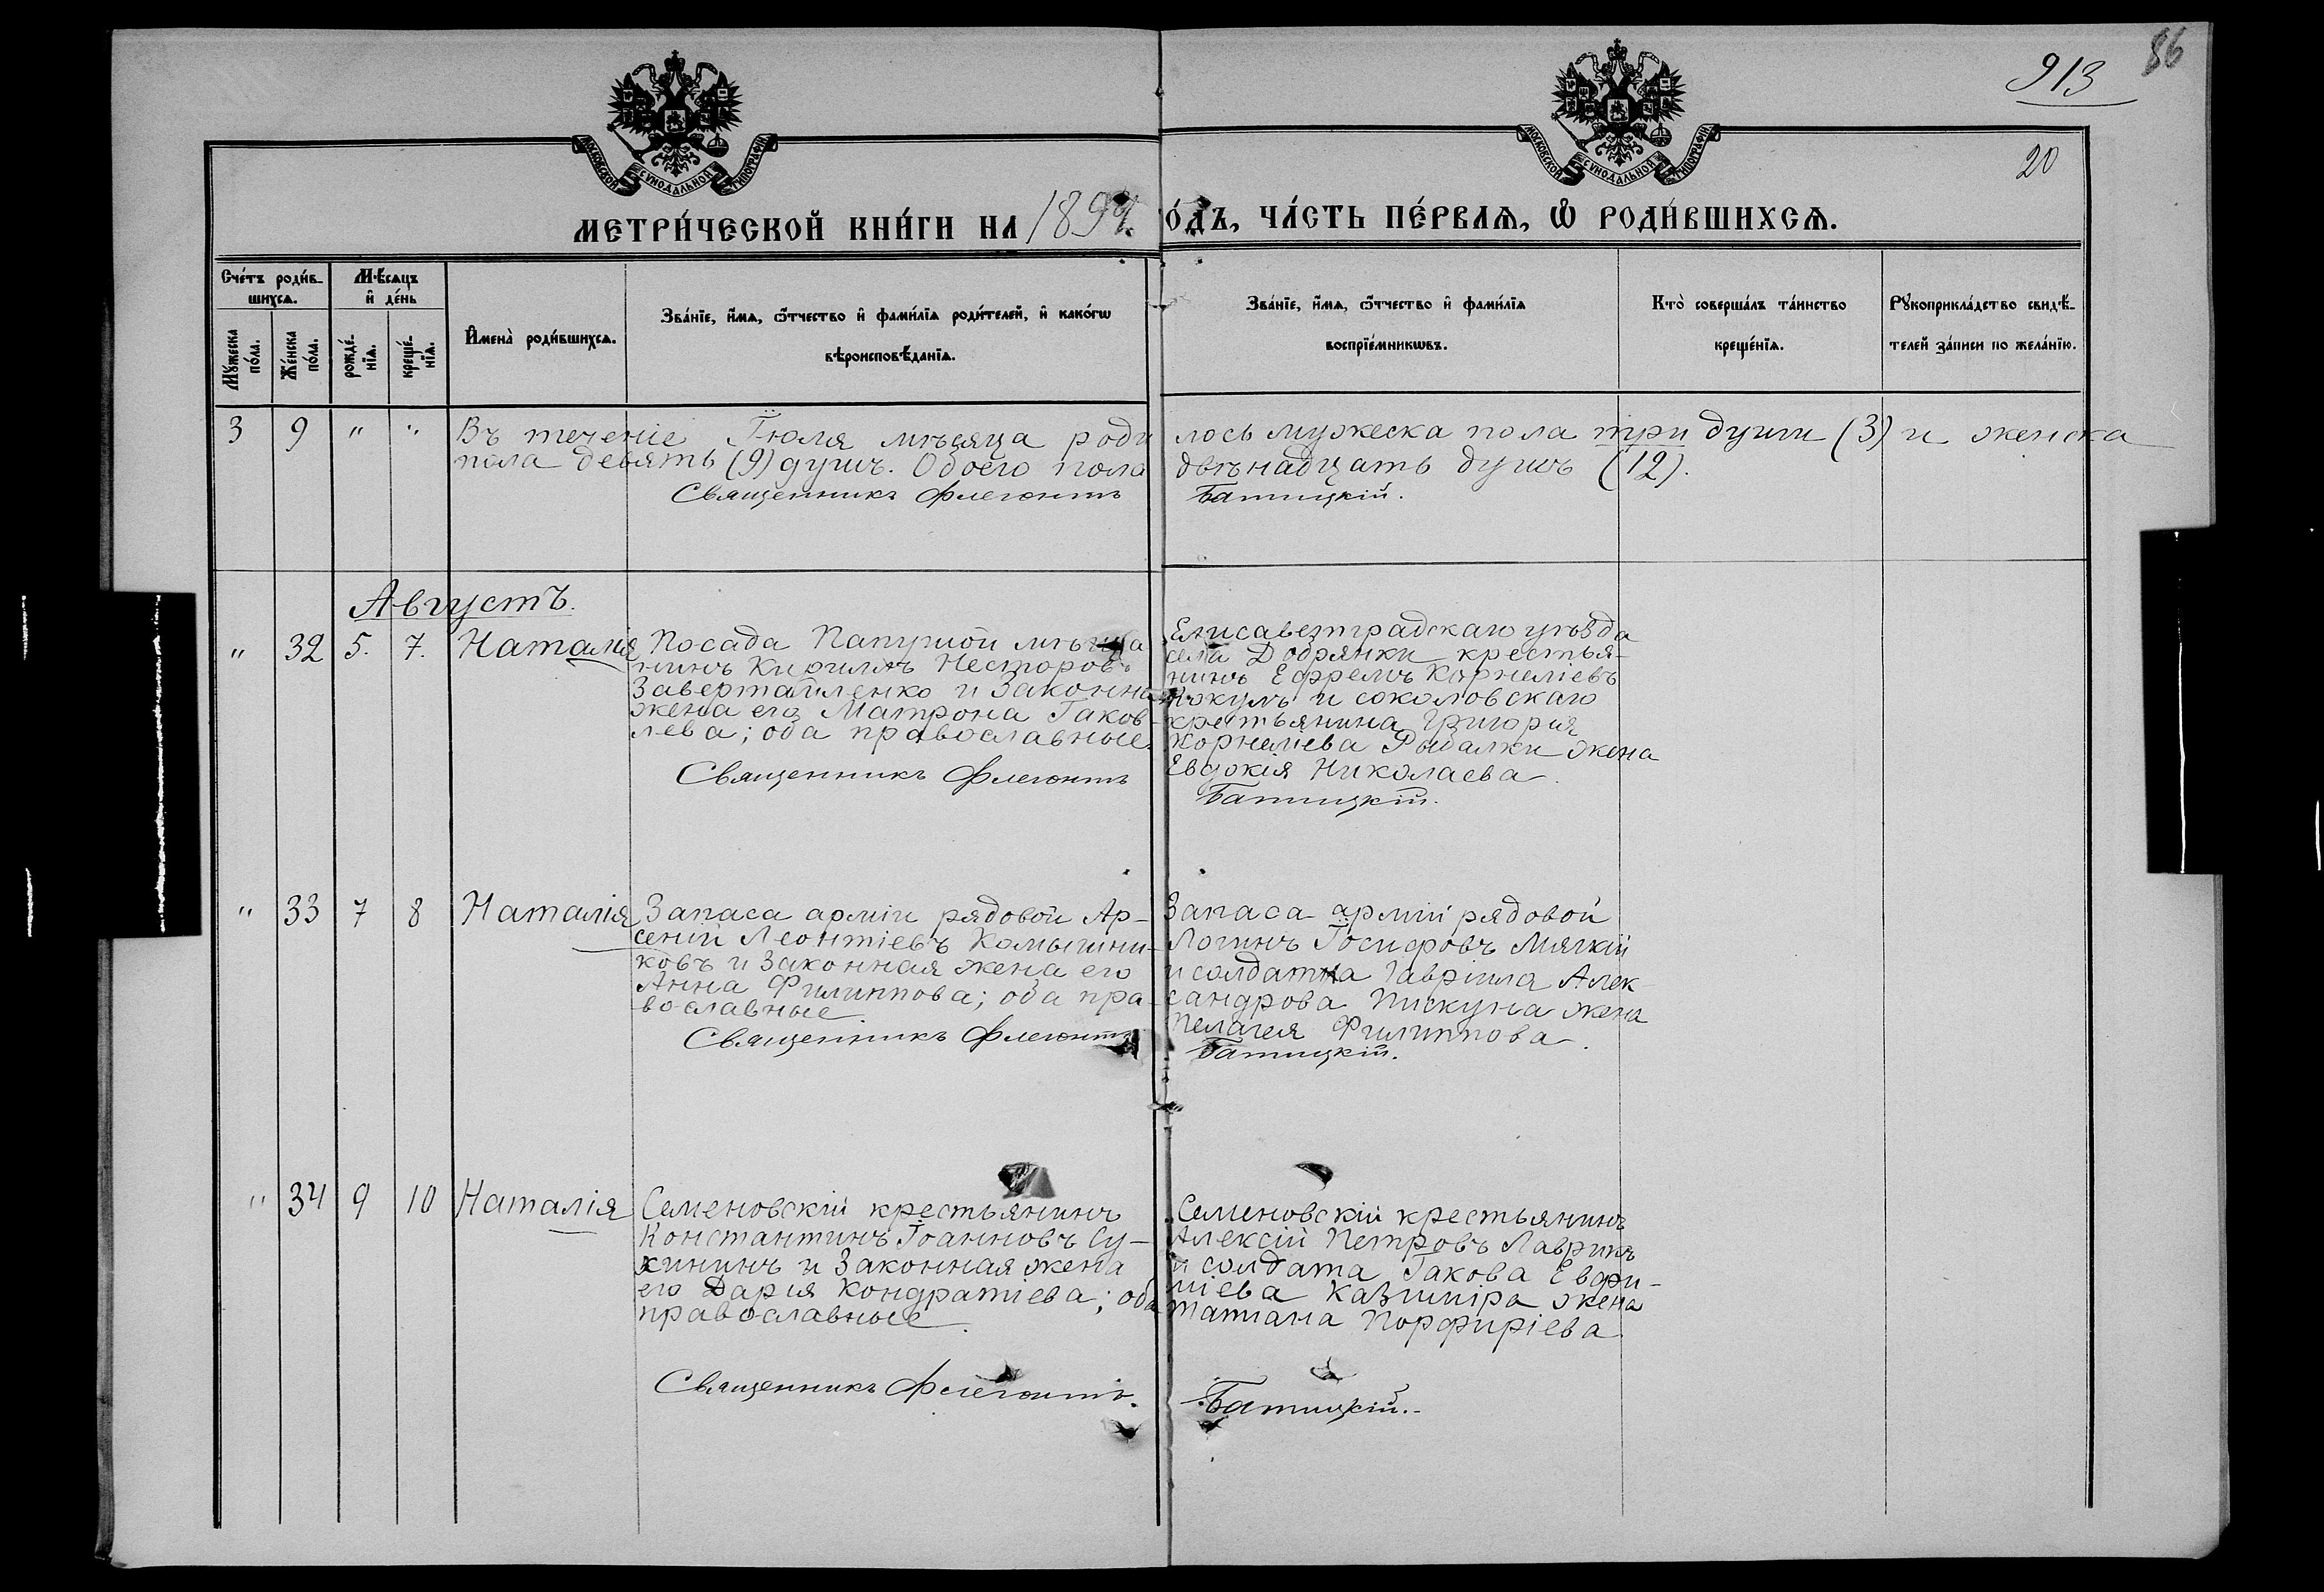 86
913
20
МОСКОВСКОЙ СѴНОДАЛЬНОЙ ТИПОГРАФІИ
МОСКОВСКОЙ СѴНОДАЛЬНОЙ ТИПОГРАФІИ
МЕТРИ́ЧЕСКОЙ КНИ́ГИ НА 189
О́ДЪ, ЧА́СТЬ ПЕ́РВАѦ, Ѡ҆ РОДИ́ВШИХСѦ.
Сче́тъ роди́в-
шихсѧ.
Мꙋ́жеска по́ла.
Же́нска по́ла.
Мѣ́сѧцъ
и҆ де́нь
рожде́нїѧ.
креще́нїѧ.
И҆мена̀ роди́вшихсѧ.
Зва́нїе, и҆́мѧ, ѻ҆́тчество и҆ фами́лїѧ роди́телей, и҆ како́гѡ
вѣроисповѣ́данїѧ.
Зва́нїе, и҆́мѧ, ѻ҆́тчество и҆ фами́лїѧ
воспрїе́мникѡвъ.
Кто̀ соверша́лъ та́инство
креще́нїѧ.
Рꙋкоприкла́дство свидѣ́-
телей за́писи по жела́нїю.
3 9 " " Въ теченіе Іюля мѣсяца роди лось мужеска пола три души (3) и женска
пола девять (9) душъ. Обоего пола двѣнадцать душъ (12).
Священникъ Флегонтъ Батицкій.
Августъ.
" 32 5. 7. Наталія
Посада Папушой мѣща
нинъ Кириллъ Несторовъ
Завертайленко и законна
жена его Матрона Іаков-
лева; оба православные.
Священникъ Флегонтъ
Елисаветградскаго уѣзда
села Добрянки крестья-
нинъ Ефремъ Корнеліевъ
и соколовскаго
крестьянина Григорія
Корнеліева Рыбалки жена
Евдокія Николаева.
Батицкій.
" 33 7 8 Наталія
Запаса арміи рядовой Ар-
сеній Леонтіевъ Камышни-
ковъ и законная жена его
Анна Филиппова; оба пра-
вославные.
Священникъ Флегонтъ
Запаса арміи рядовой
Логинъ Іосифовъ Мягкій
и солдатка Гавріила Алек
сандрова Пискуна жена
Пелагея Филиппова.
Батицкій.
" 34 9 10 Наталія
Семеновскій крестьянинъ
Константинъ Іоанновъ Су-
хининъ и законная жена
его Дарія Кондратіева; оба
православные.
Священникъ Флегонтъ.
Семеновскій крестьянинъ
Алексій Петровъ Лавринъ
и солдата Іакова Евфи-
міева Казиміра жена
Татіана Порфиріева
Батицкій.